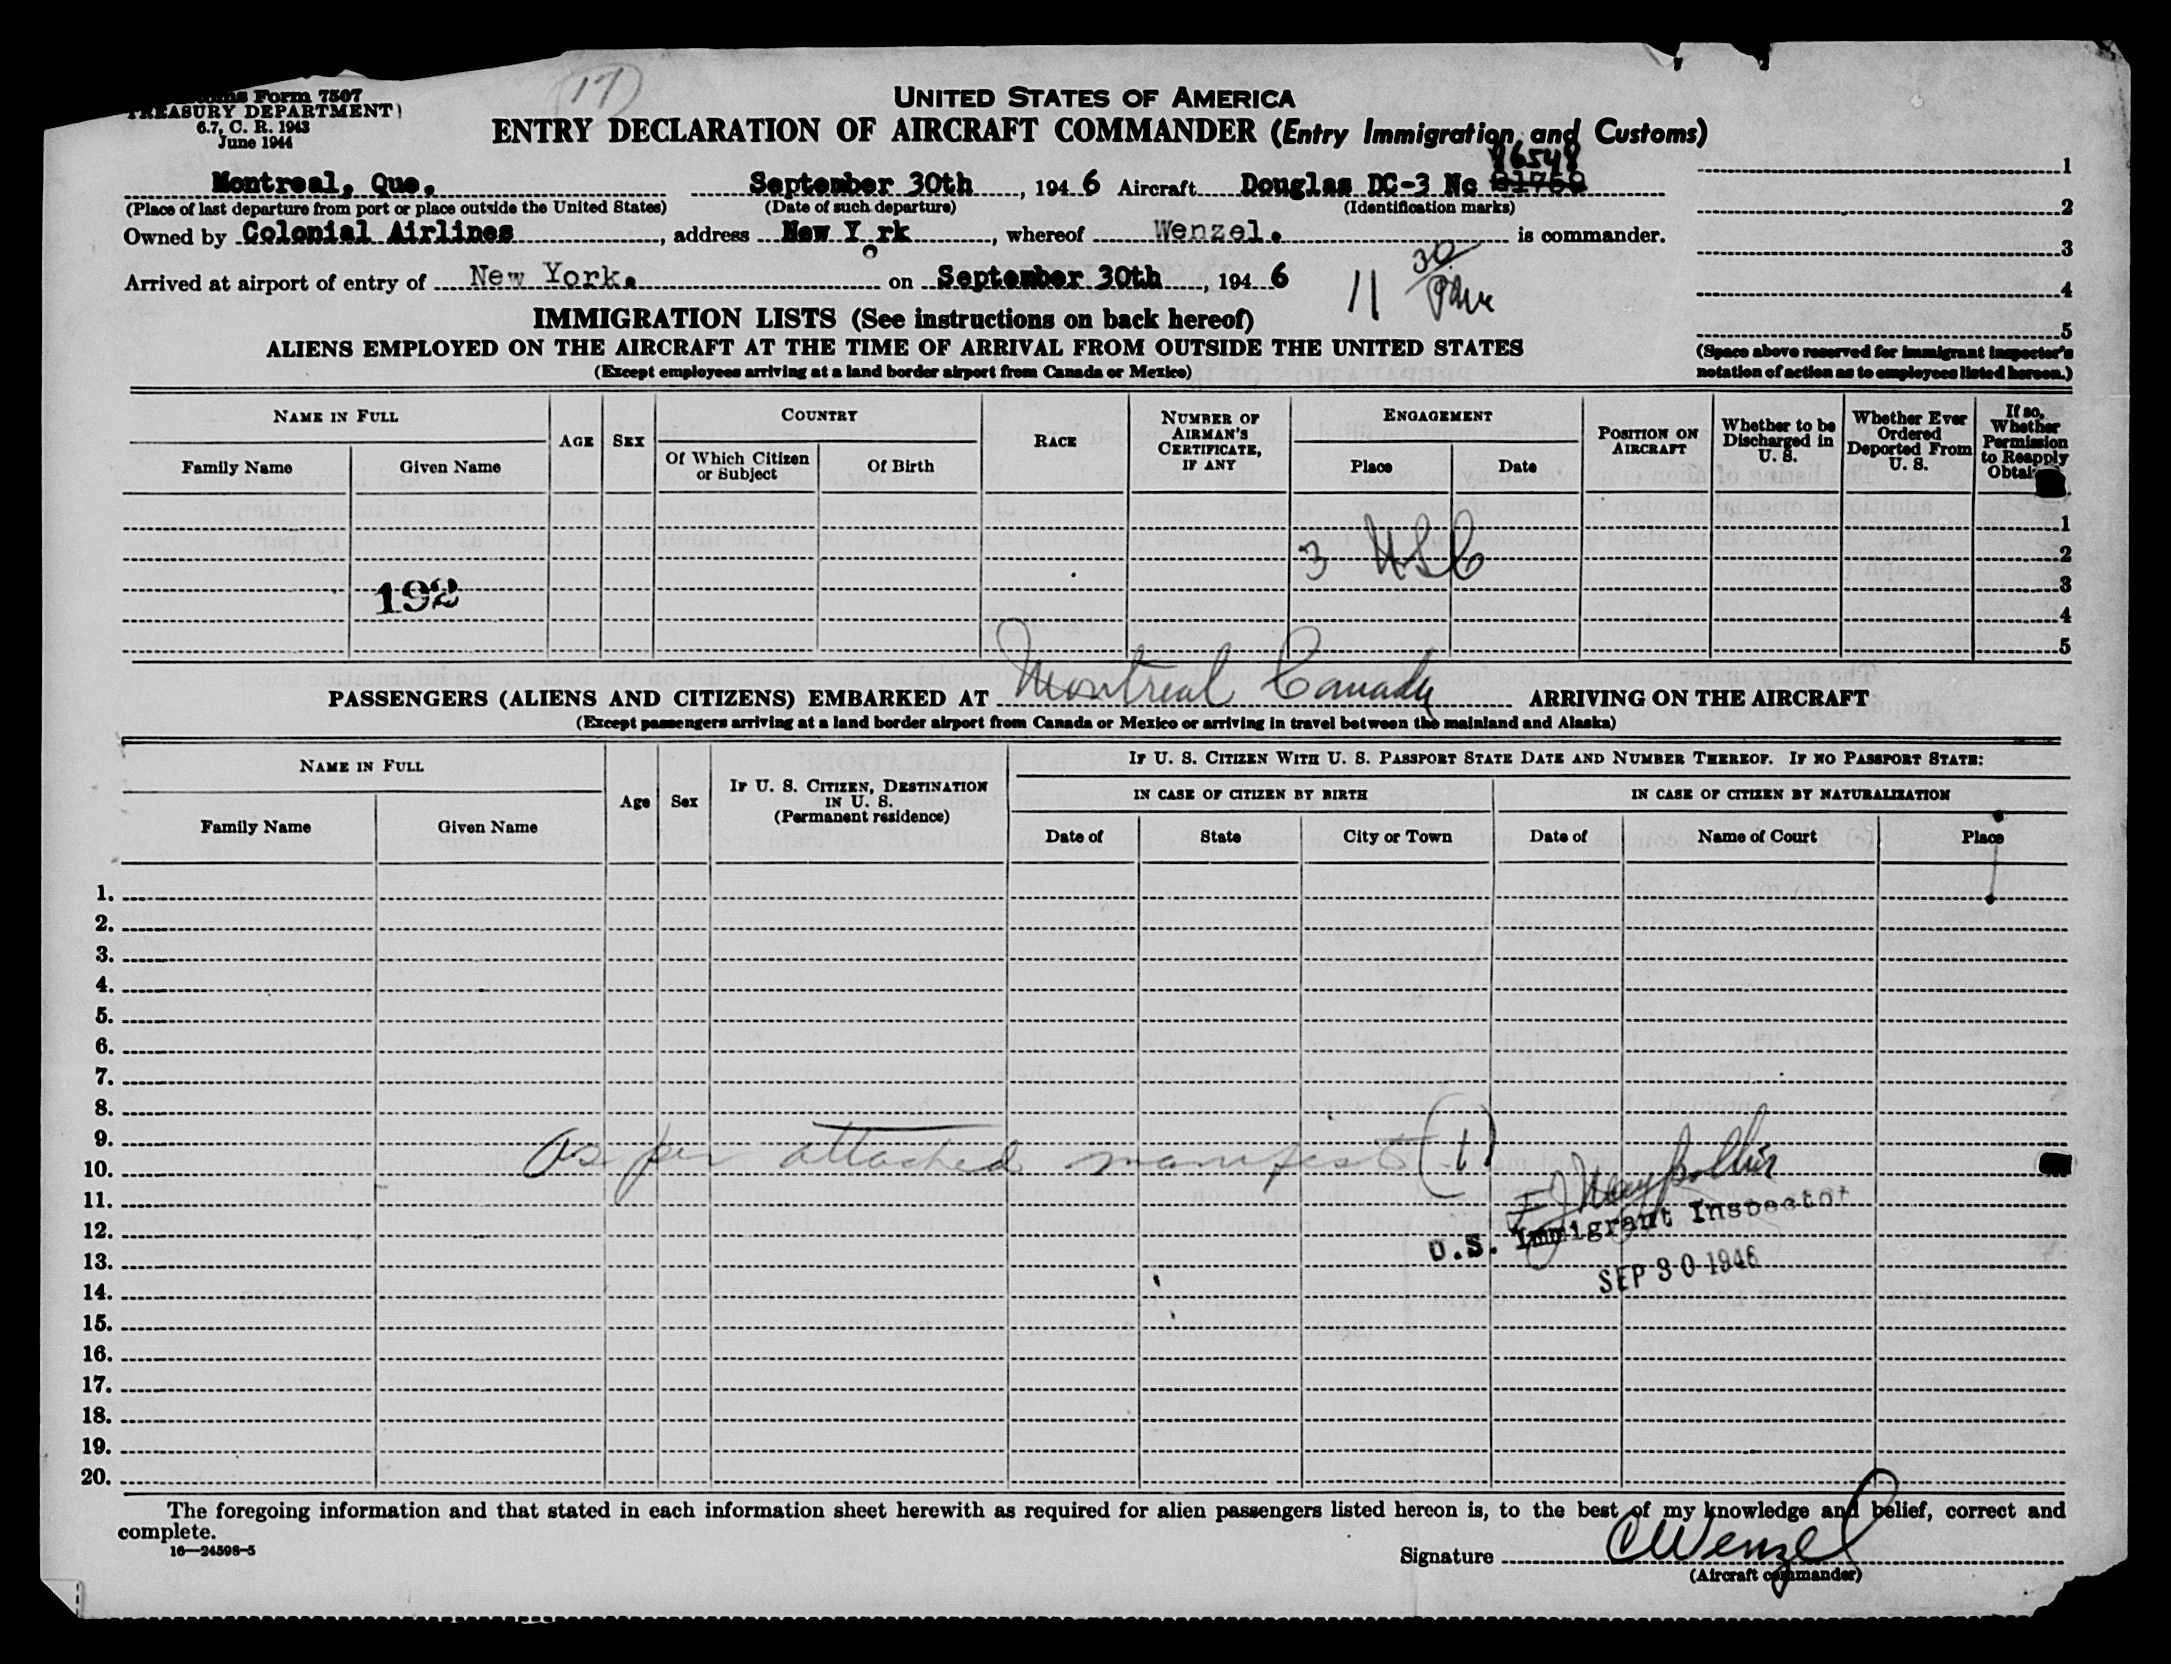 Form 7507
TREASURY DEPARTMENT
6.7, C. R. 1943
June 1944
17
UNITED STATES OF AMERICA
ENTRY DECLARATION OF AIRCRAFT COMMANDER (Entry Immigration and Customs)
86548
Montreal, Que. September 30th, 194 6 Aircraft Douglas DC-3 Nc
(Place of last departure from port or place outside the United States) (Date of such departure) (Identification marks)
Owned by Colonial Airlines, address New York, whereof Wenzel. is commander.
Arrived at airport of entry of New York. on September 30th, 194 6 11 30 Pm
1
2
3
4
5
(Space above reserved for immigrant inspector's
notation of action as to employees listed hereon.)
IMMIGRATION LISTS (See instructions on back hereof)
ALIENS EMPLOYED ON THE AIRCRAFT AT THE TIME OF ARRIVAL FROM OUTSIDE THE UNITED STATES
(Except employees arriving at a land border airport from Canada or Mexico)
NAME IN FULL
Family Name
Given Name
AGE
SEX
COUNTRY
Of Which Citizen
or Subject
Of Birth
RACE
NUMBER OF
AIRMAN'S
CERTIFICATE,
IF ANY
ENGAGEMENT
Place
Date
POSITION ON
AIRCRAFT
Whether to be
Discharged in
U. S.
Whether Ever
Ordered
Deported From
U. S.
If so,
Whether
Permission
to Reapply
1
2
3
4
5
3 USC
192
PASSENGERS (ALIENS AND CITIZENS) EMBARKED AT Montreal Canada ARRIVING ON THE AIRCRAFT
(Except passengers arriving at a land border airport from Canada or Mexico or arriving in travel between the mainland and Alaska)
NAME IN FULL
Family Name
Given Name
Age
Sex
IF U. S. CITIZEN, DESTINATION
IN U. S.
(Permanent residence)
IF U. S. CITIZEN WITH U. S. PASSPORT STATE DATE AND NUMBER THEREOF. IF NO PASSPORT STATE:
IN CASE OF CITIZEN BY BIRTH
Date of
State
City or Town
IN CASE OF CITIZEN BY NATURALIZATION
Date of
Name of Court
Place
1.
2.
3.
4.
5.
6.
7.
8.
9.
10.
11.
12.
13.
14.
15.
16.
17.
18.
19.
20.
As per attached manifest (1)
U.S. Immigrant Inspector
SEP 30 1946
The foregoing information and that stated in each information sheet herewith as required for alien passengers listed hereon is, to the best of my knowledge and belief, correct and
complete.
16—24598-5
Signature CWenzel
(Aircraft commander)